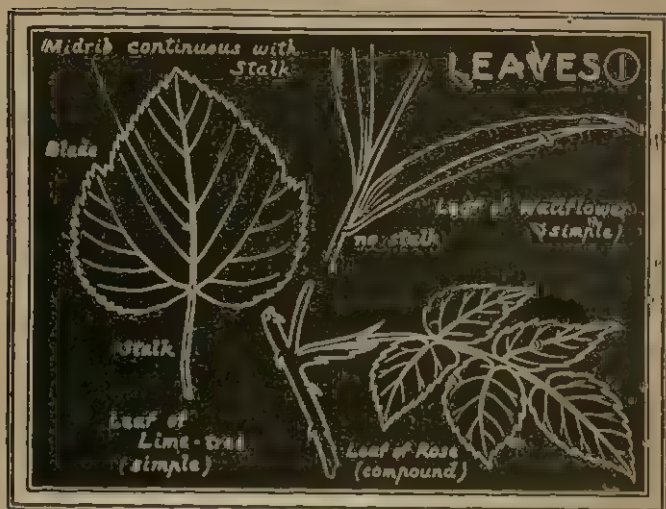 Midrib continuous with
Stalk
LEAVES ①
Blade
Leaf of Wallflower
(simple)
no stalk
Stalk
Leaf of
Lime-tree
(simple)
Leaf of Rose
(compound)